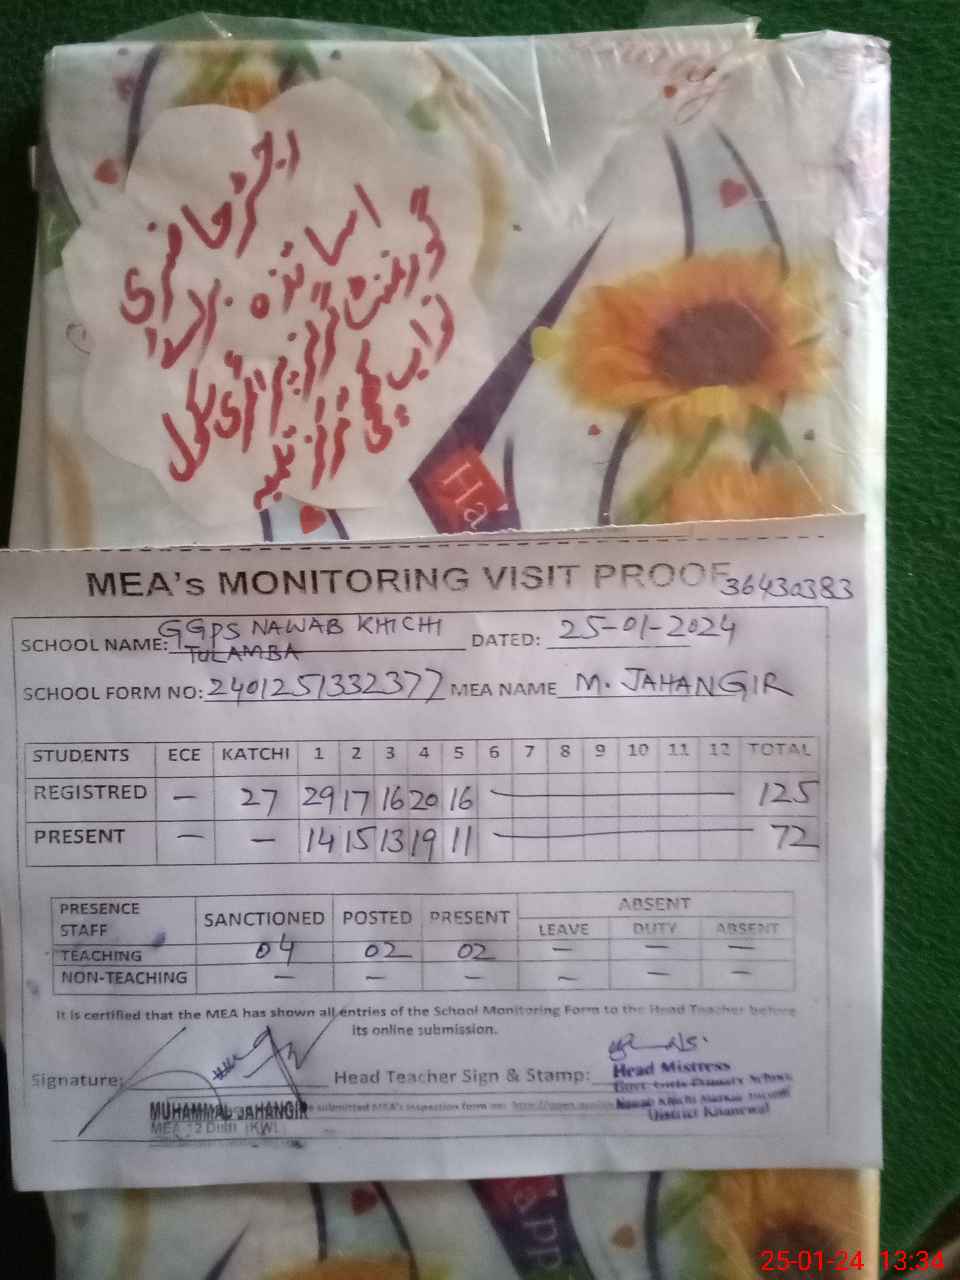 رجسٹر حاضری
اساتذہ
گورنمنٹ گرلز پرائمری سکول
نواب
Ha
MEA's MONITORING VISIT PROOF
36430383
SCHOOL NAME: GGPS NAWAB KHICHI DATED: 25-01-2024
TULAMBA
SCHOOL FORM NO: 2401251332377 MEA NAME M. JAHANGIR
STUDENTS ECE KATCHI 1 2 3 4 5 6 7 8 9 10 11 12 TOTAL
REGISTRED — 27 29 17 16 20 16 — 125
PRESENT — — 14 15 13 19 11 — 72
PRESENCE STAFF SANCTIONED POSTED PRESENT ABSENT
LEAVE DUTY ABSENT
TEACHING 04 02 02 — — —
NON-TEACHING — — — — — —
It is certified that the MEA has shown all entries of the School Monitoring Form to the Head Teacher before
its online submission.
Signature: Head Teacher Sign & Stamp:
Head Mistress
Govt. Girls Primary School
Nawab Khichi Markaz
District Khanewal
submitted MEA's inspection form on:
MUHAMMAD JAHANGIR
MEA
(KWL)
25-01-24 13:34